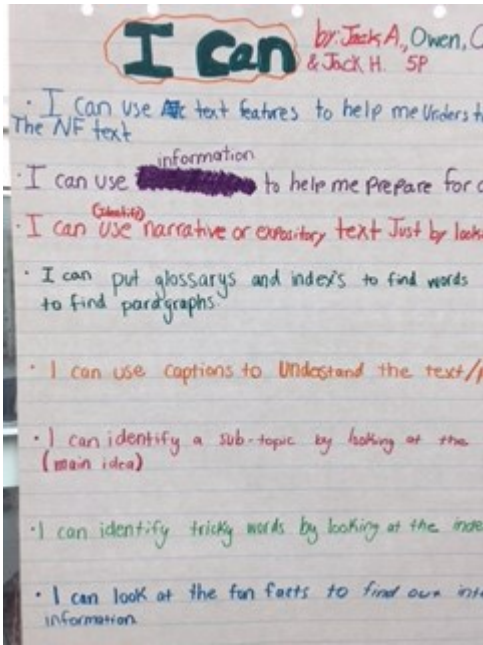 I can
by: Jack A., Owen, C
& Jack H. 5P
· I can use text features to help me Understa
The NF text
information
· I can use to help me prepare for
(Identify)
· I can use narrative or expository text Just by look
· I can put glossarys and index's to find words
to find paragraphs.
· I can use captions to Undestand the text/
· I can identify a sub-topic by looking at the
(main idea)
· I can identify tricky words by looking at the inde
· I can look at the fun facts to find out inte
information